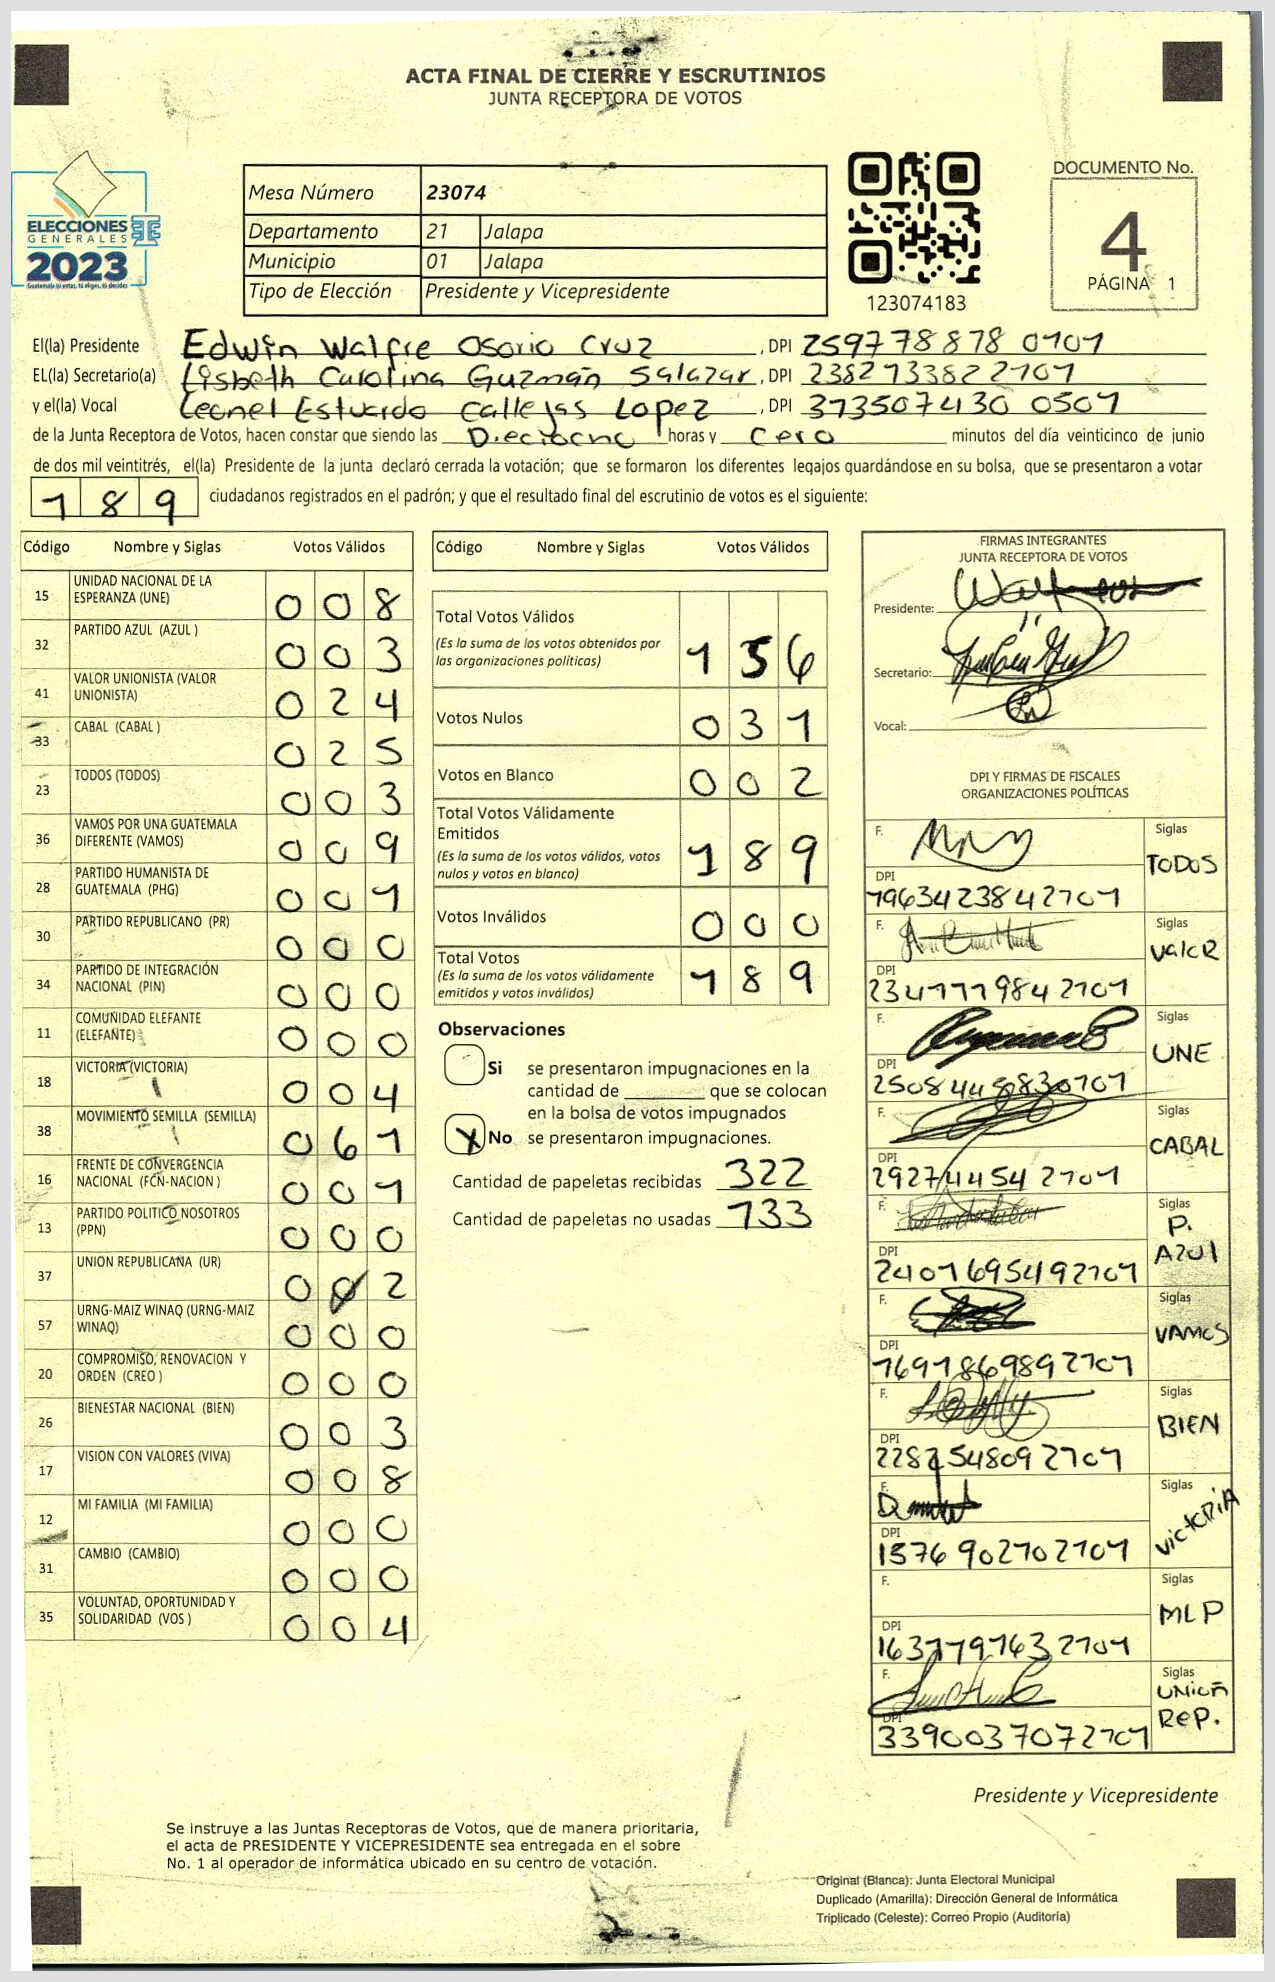 ACTA FINAL DE CIERRE Y ESCRUTINIOS
JUNTA RECEPTORA DE VOTOS
ELECCIONES
GENERALES
2023
Guatemala tú votas, tú eliges, tú decides
Mesa Número 23074
Departamento 21 Jalapa
Municipio 01 Jalapa
Tipo de Elección Presidente y Vicepresidente
123074183
DOCUMENTO No.
4
PÁGINA 1
El(la) Presidente Edwin Walfre Osorio Cruz, DPI 259778878 0101
EL(la) Secretario(a) Lisbeth Carolina Guzmán Salazar, DPI 2382733822101
y el(la) Vocal Leonel Estuardo Callejas Lopez, DPI 373507430 0501
de la Junta Receptora de Votos, hacen constar que siendo las Dieciocho horas y Cero minutos del día veinticinco de junio
de dos mil veintitrés, el(la) Presidente de la junta declaró cerrada la votación; que se formaron los diferentes legajos guardándose en su bolsa, que se presentaron a votar
189 ciudadanos registrados en el padrón; y que el resultado final del escrutinio de votos es el siguiente:
Código Nombre y Siglas Votos Válidos
15 UNIDAD NACIONAL DE LA ESPERANZA (UNE) 008
32 PARTIDO AZUL (AZUL ) 003
41 VALOR UNIONISTA (VALOR UNIONISTA) 024
33 CABAL (CABAL ) 025
23 TODOS (TODOS) 003
36 VAMOS POR UNA GUATEMALA DIFERENTE (VAMOS) 009
28 PARTIDO HUMANISTA DE GUATEMALA (PHG) 001
30 PARTIDO REPUBLICANO (PR) 000
34 PARTIDO DE INTEGRACIÓN NACIONAL (PIN) 000
11 COMUNIDAD ELEFANTE (ELEFANTE) 000
18 VICTORIA (VICTORIA) 004
38 MOVIMIENTO SEMILLA (SEMILLA) 061
16 FRENTE DE CONVERGENCIA NACIONAL (FCN-NACION ) 001
13 PARTIDO POLITICO NOSOTROS (PPN) 000
37 UNION REPUBLICANA (UR) 002
57 URNG-MAIZ WINAQ (URNG-MAIZ WINAQ) 000
20 COMPROMISO, RENOVACION Y ORDEN (CREO ) 000
26 BIENESTAR NACIONAL (BIEN) 003
17 VISION CON VALORES (VIVA) 008
12 MI FAMILIA (MI FAMILIA) 000
31 CAMBIO (CAMBIO) 000
35 VOLUNTAD, OPORTUNIDAD Y SOLIDARIDAD (VOS ) 004
Código Nombre y Siglas Votos Válidos
Total Votos Válidos 156
(Es la suma de los votos obtenidos por las organizaciones políticas)
Votos Nulos 031
Votos en Blanco 002
Total Votos Válidamente Emitidos 189
(Es la suma de los votos válidos, votos nulos y votos en blanco)
Votos Inválidos 000
Total Votos 189
(Es la suma de los votos válidamente emitidos y votos inválidos)
Observaciones
Si se presentaron impugnaciones en la
cantidad de ________ que se colocan
en la bolsa de votos impugnados
X No se presentaron impugnaciones.
Cantidad de papeletas recibidas 322
Cantidad de papeletas no usadas 133
FIRMAS INTEGRANTES
JUNTA RECEPTORA DE VOTOS
Presidente:
Secretario:
Vocal:
DPI Y FIRMAS DE FISCALES
ORGANIZACIONES POLÍTICAS
F. Siglas TODOS
DPI 7963423842101
F. Siglas Valor
DPI 2341119842101
F. Siglas UNE
DPI
F. Siglas CABAL
DPI
F. Siglas P. AZUl
DPI 2401695492101
F. Siglas VAMOS
DPI
F. Siglas BIEN
DPI
F. Siglas VictoRiA
DPI 1576902102101
F. Siglas MLP
DPI
F. Siglas UNION REP.
DPI 3390037072101
Presidente y Vicepresidente
Se instruye a las Juntas Receptoras de Votos, que de manera prioritaria,
el acta de PRESIDENTE Y VICEPRESIDENTE sea entregada en el sobre
No. 1 al operador de informática ubicado en su centro de votación.
Original (Blanca): Junta Electoral Municipal
Duplicado (Amarilla): Dirección General de Informática
Triplicado (Celeste): Correo Propio (Auditoría)